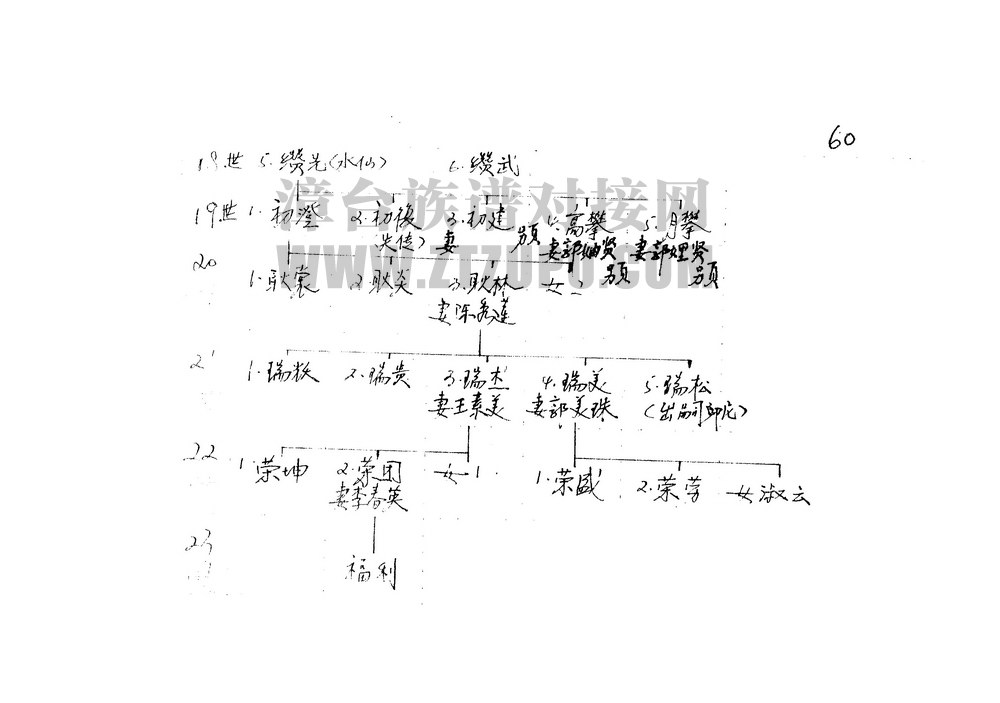 60
18世 5.缵光(水仙) 6.缵武
漳台族谱对接网
19世 1.初澄 2.初復 3.初建 4.高攀 5.月攀
失徒) 妻 另页 妻郭 贤 妻郭 贤
WWW.ZTZUPU.COM
20 1.耿裳 2.耿炎 3.耿林 女二 另页 另页
妻陈秀莲
21 1.瑞粦 2.瑞贵 3.瑞杰 4.瑞美 5.瑞松
妻王素美 妻郭美珠 (出嗣印尼)
22 1.荣坤 2.荣团 女1 1.荣盛 2.荣芳 女淑云
妻李春英
23
福利